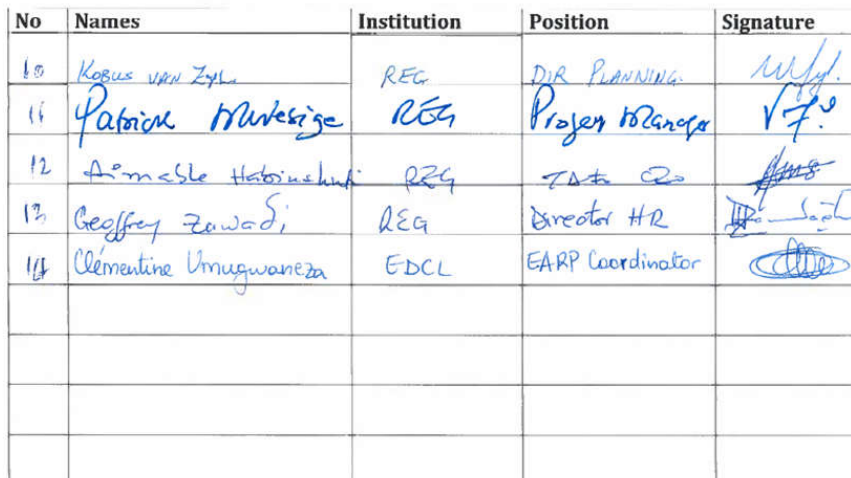 No Names Institution Position Signature
10 Kobus van Zyl REG DIR PLANNING.
11 Patrick REG Manager
12 Aimable REG
13 Geoffrey Zawadi REG Director HR
14 Clémentine Umugwaneza EDCL EARP Coordinator